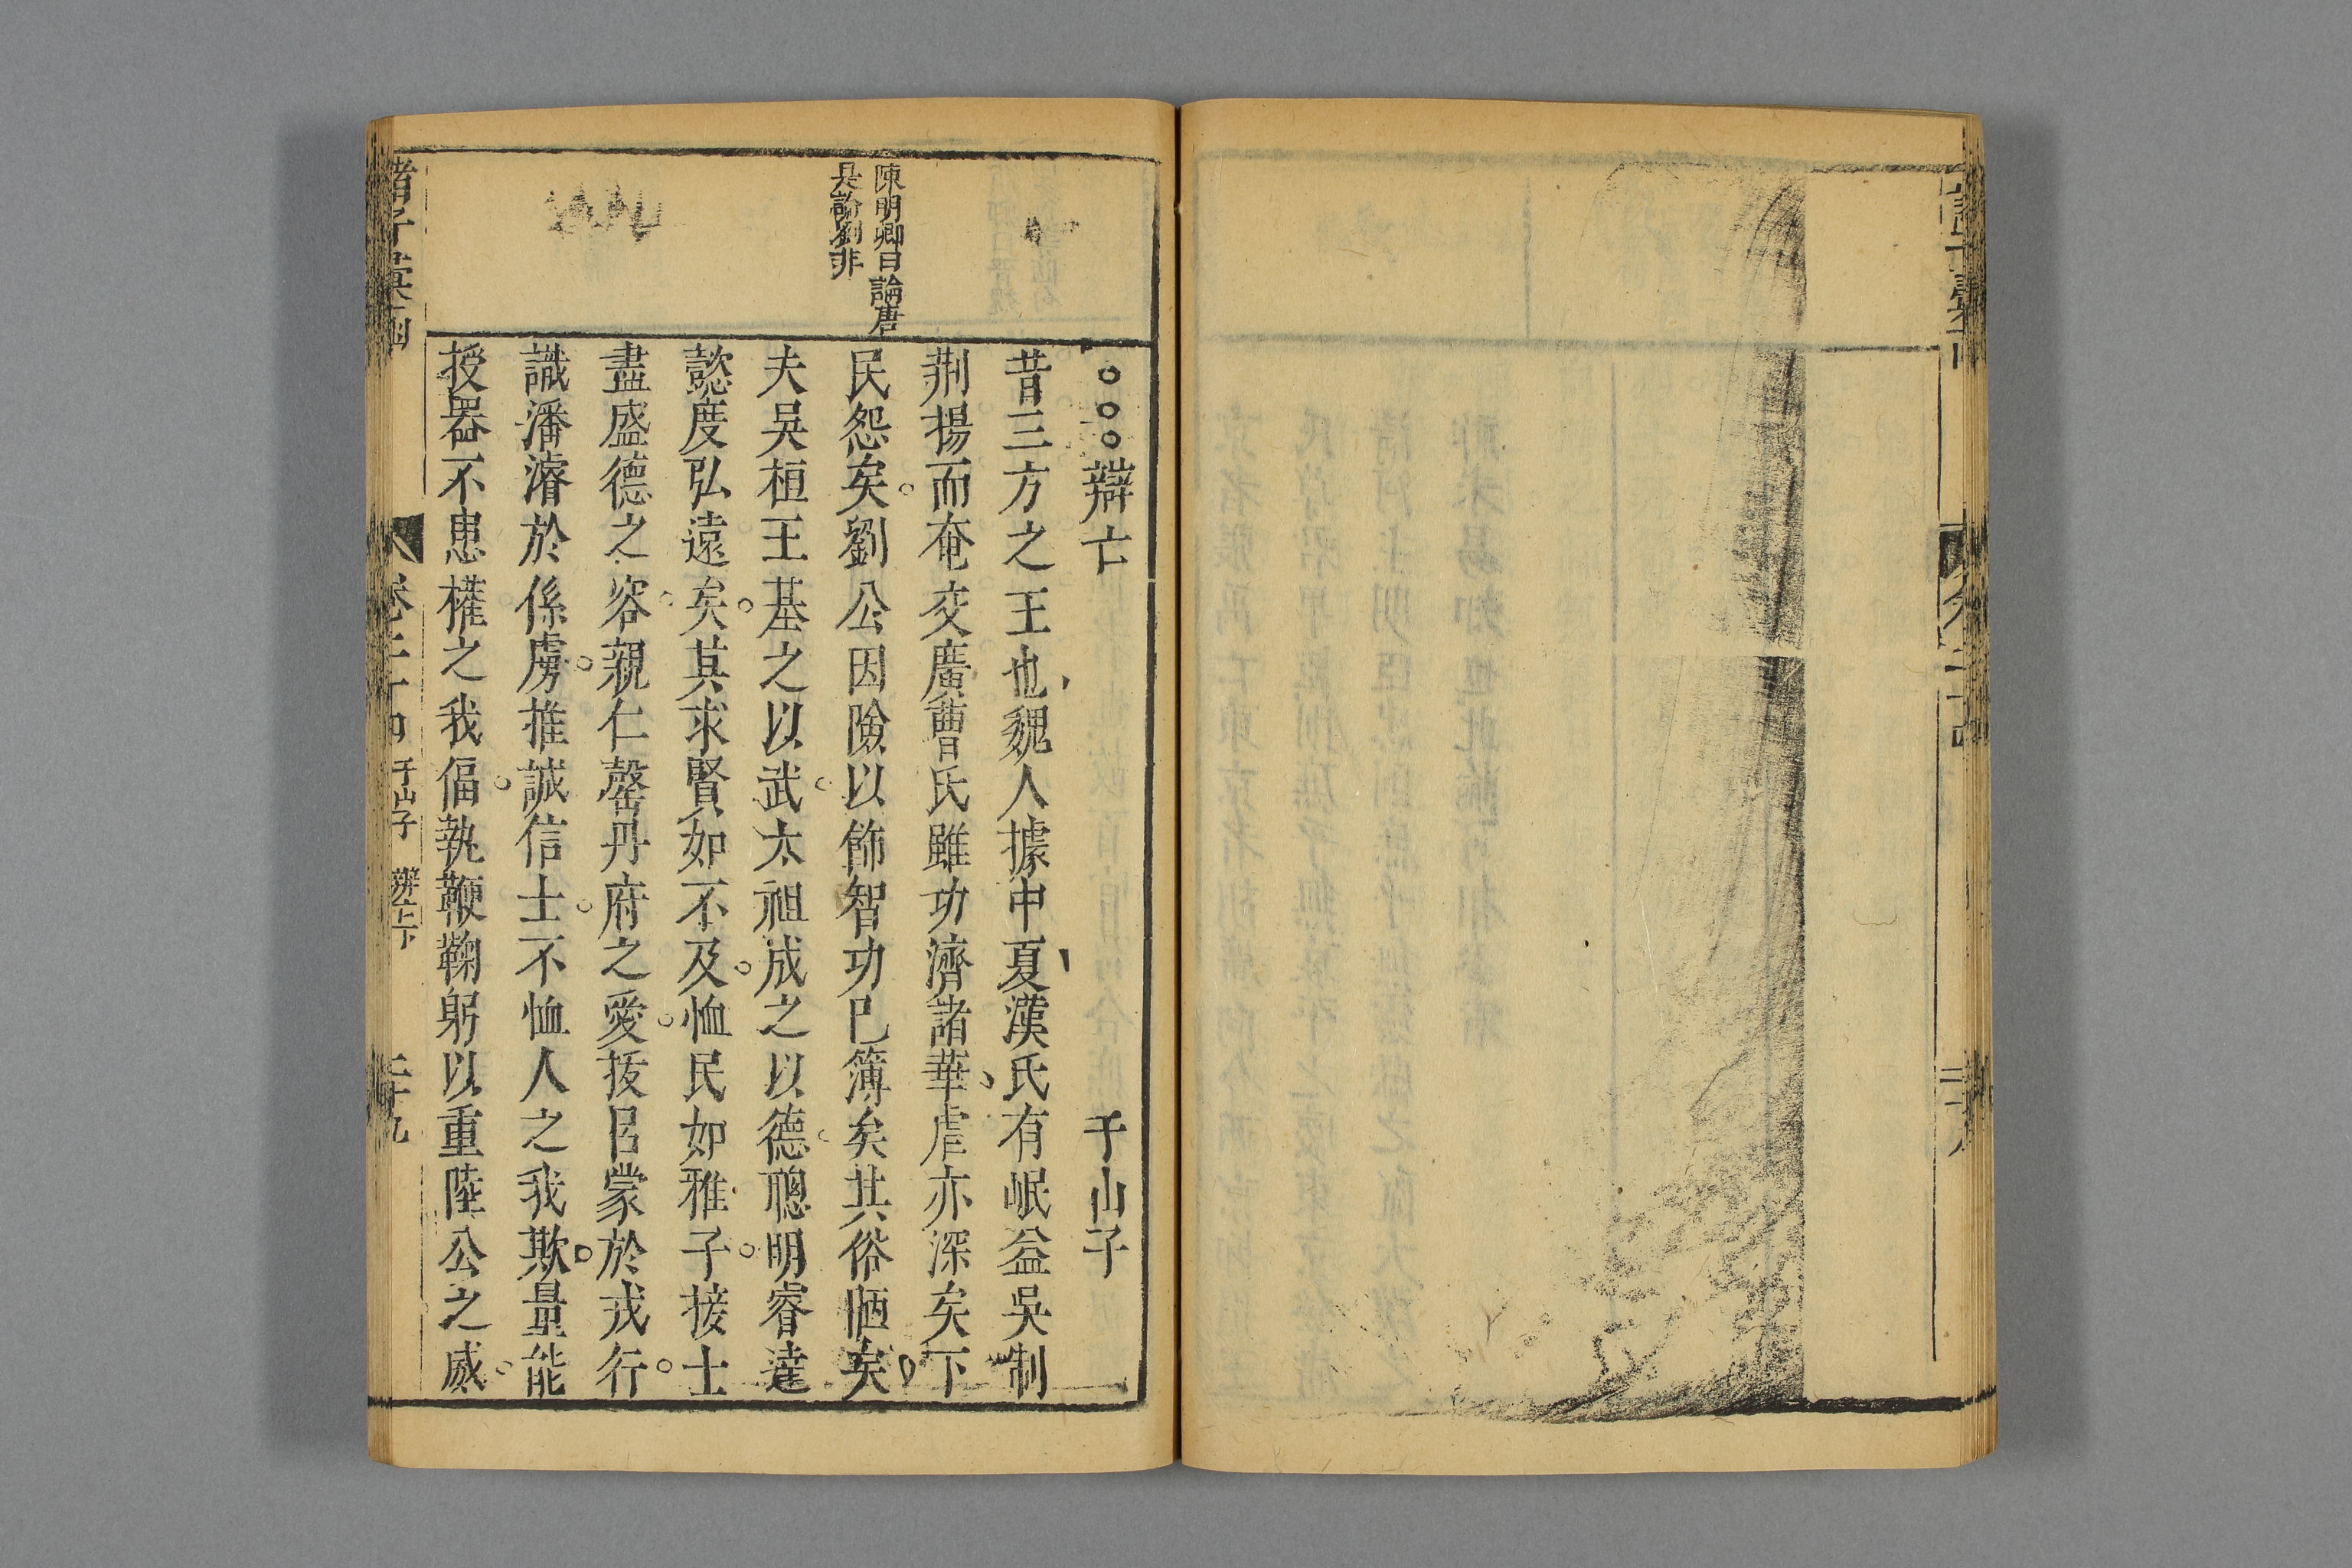 辯亡 千山子
昔三方之王也魏人據中夏漢氏有岷益吳制
荆揚而奄交廣曹氏雖功濟諸華虐亦深矣下
民怨矣劉公因險以飾智功已簿矣其俗陋矣
夫吳桓王基之以武太祖成之以德聰明睿達
懿度弘遠矣其求賢如不及恤民如雅子接士
盡盛德之容親仁罄丹府之愛拔呂蒙於戎行
識潘濬於係虜推誠信士不恤人之我欺量能
授器不患權之我偪執鞭鞠躬以重陸公之威
陳明卿曰論唐
是論劉非
諸子彙函
卷二十四 千山子 辯亡下
二十九